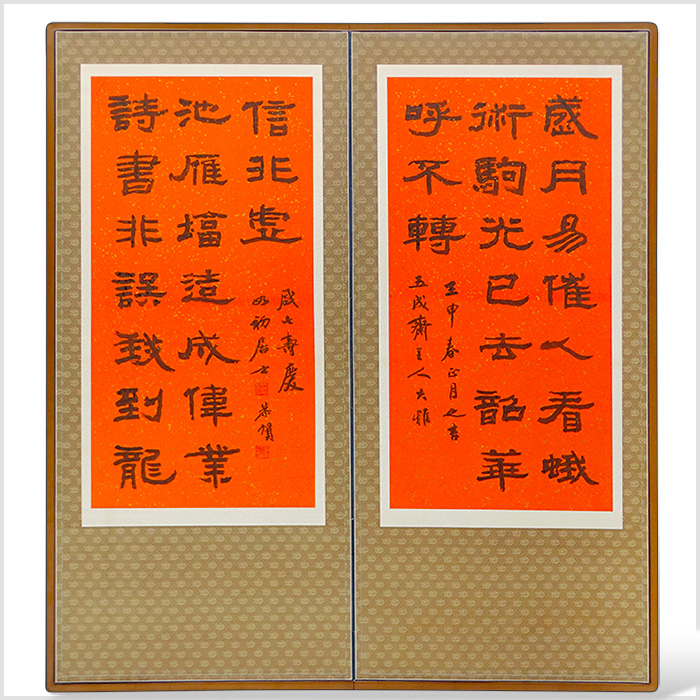 歲月易催人看蛾
術駒光已去韶華
呼不轉
壬申春正月之吉
五成齋主人大雅
詩書非誤我到龍
池雁塔造成偉業
信非虛
七壽慶
如初居士